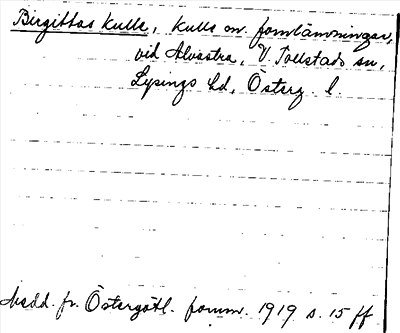 Birgittas kulle, kulle m. fornlämningar,
vid Alvastra, V. Tollstads sn,
Lysings hd, Österg. l.
Medd. fr. Östergötl. fornm. 1919 s. 15 ff